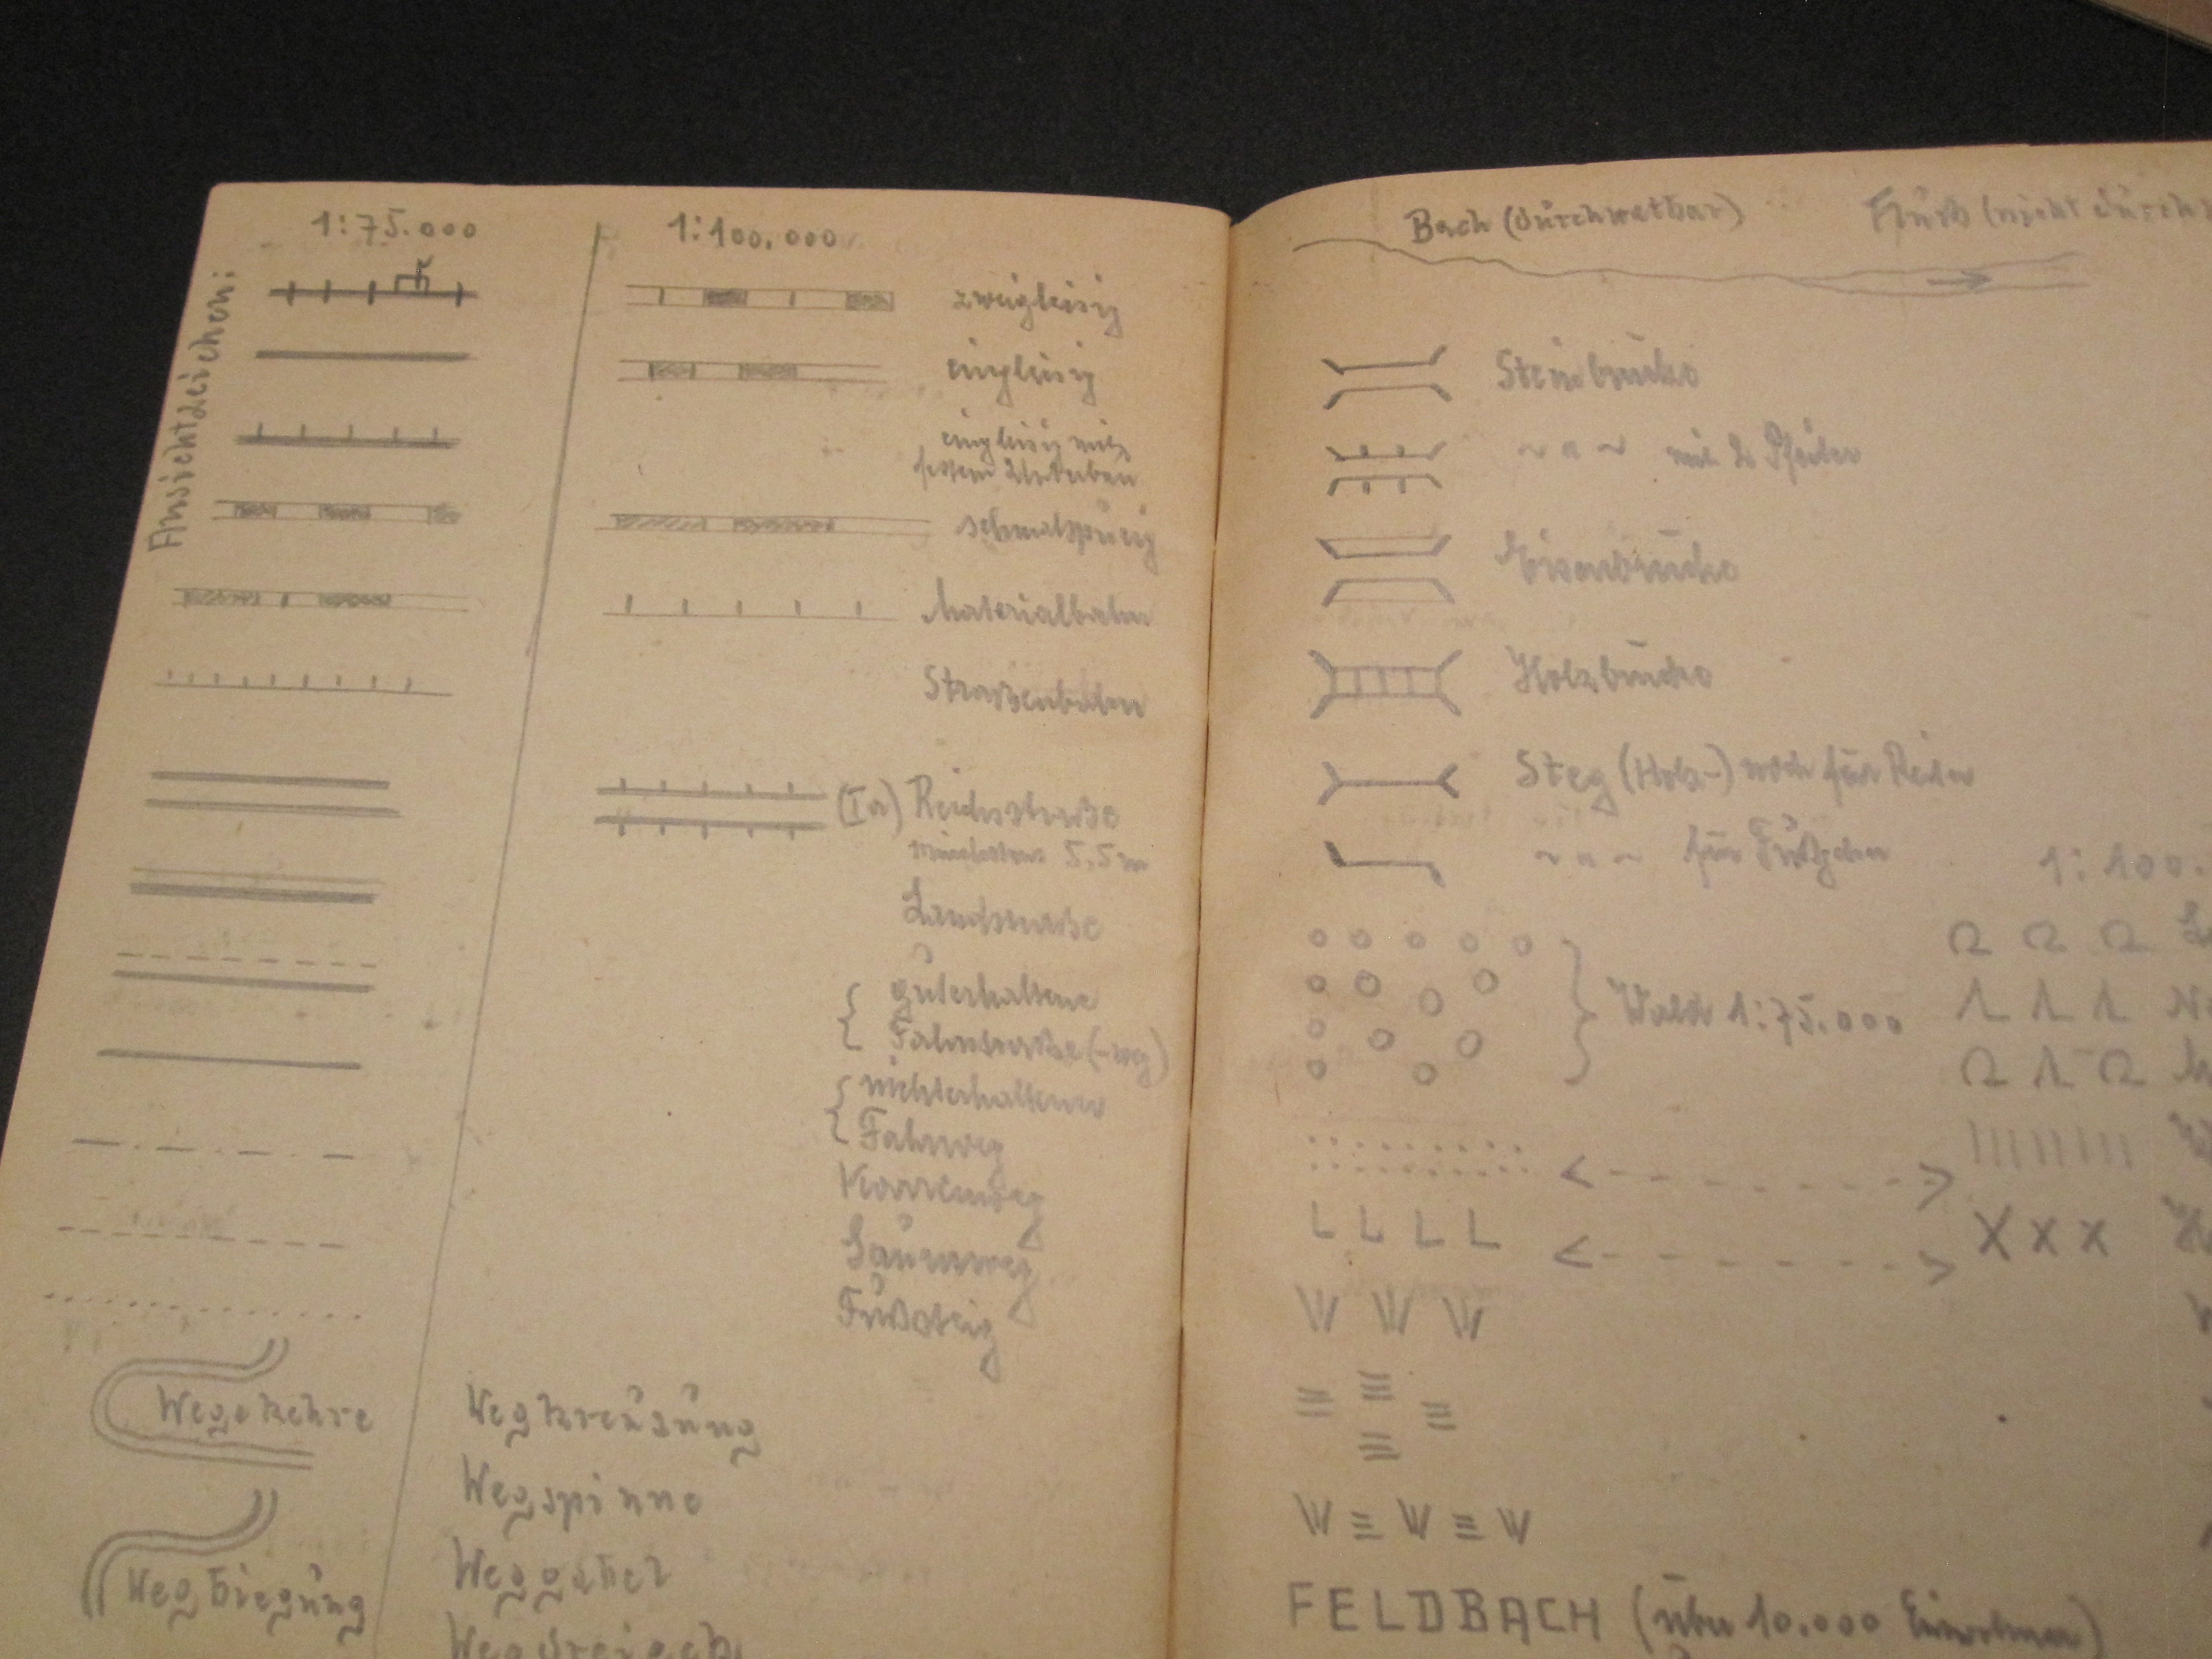 1:75.000
1:100.000
zweigleisig
eingleisig
eingleisig mit
festem Unterbau
schmalspurig
Materialbahn
Straßenbahn
(Ia) Reichsstraße
mindestens 5,5 m
Landstraße
guterhaltene
Fahrstraße (-weg)
nichterhaltener
Fahrweg
Karrenweg
Saumweg
Fußsteig
Wegekehre
Wegkreuzung
Wegspinne
Weggabel
Wegbiegung
Wegdreieck
Bach (durchwatbar)
Fluß (nicht durch
Steinbrücke
~ " ~ mit 2 Pfeiler
Eisenbrücke
Holzbrücke
Steg (Holz-) noch für Reiter
~ " ~ für Fußgeher
1:100.
Wald 1:75.000
FELDBACH (über 10.000 Einwohner)